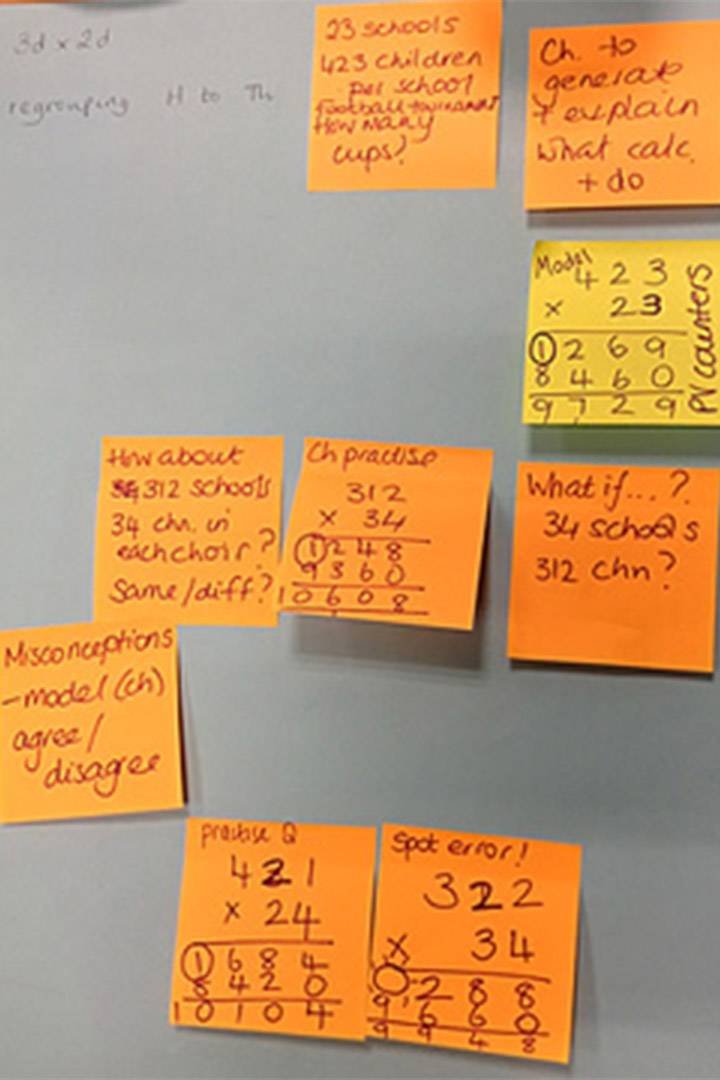 3d x 2d
regrouping H to Th
23 schools
423 children
per school
football tournament
How many
cups?
Ch. to
generate
+ explain
what calc.
+ do
Model
423
x 23
1269
8460
9729
PV counters
How about
312 schools
34 chn. in
each choir?
Same/diff?
Ch practise
312
x 34
1248
9360
10608
1
What if...?
34 schools
312 chn?
Misconceptions
- model (ch)
agree/
disagree
practise Q
421
x 24
1684
8420
10104
Spot error!
322
x 34
0288
9660
9948